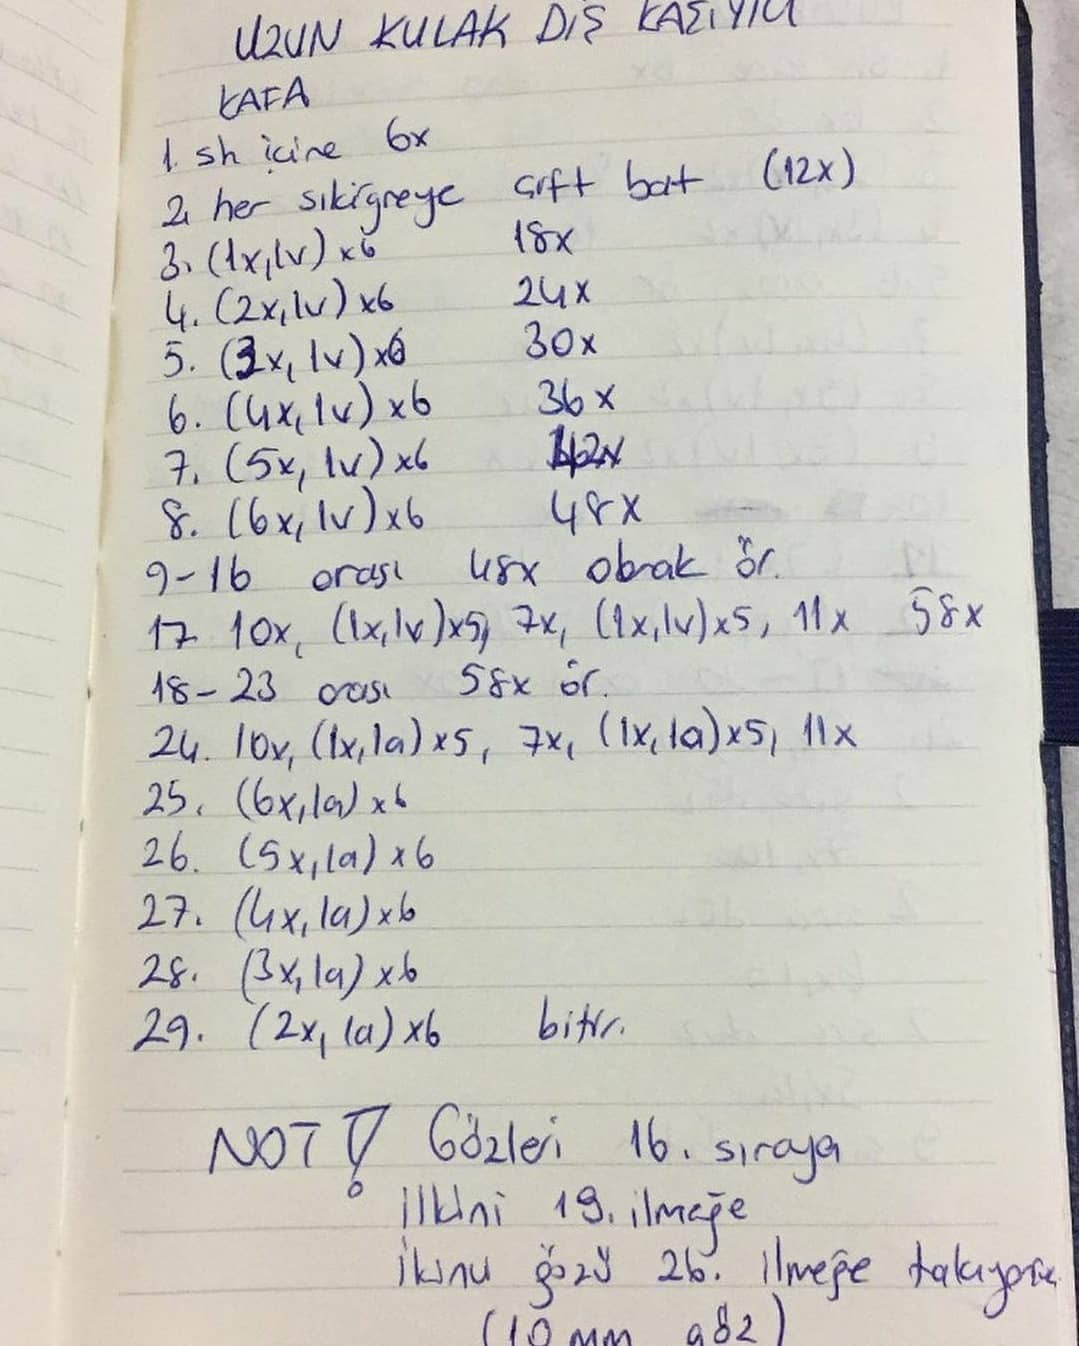 UZUN KULAK DİŞ KAŞIYICI
KAFA
1. sh içine 6x
2. her sıkiğneye çift bat (12x)
3. (1x,1v) x6 18x
4. (2x,1v) x6 24x
5. (3x, 1v) x6 30x
6. (4x,1v) x6 36x
7. (5x, 1v) x6 42x
8. (6x,1v) x6 48x
9-16 arası 48x olarak ör.
17 10x, (1x,1v)x5, 7x, (1x,1v)x5, 11x 58x
18-23 arası 58x ör.
24. 10x, (1x,1a)x5, 7x, (1x,1a)x5, 11x
25. (6x,1a) x6
26. (5x,1a) x6
27. (4x,1a) x6
28. (3x,1a) x6
29. (2x, 1a) x6 bitir.
NOT! Gözleri 16. sıraya
ilkini 19. ilmeğe
ikinci gözü 26. ilmeğe takıyoruz
(10 mm göz)